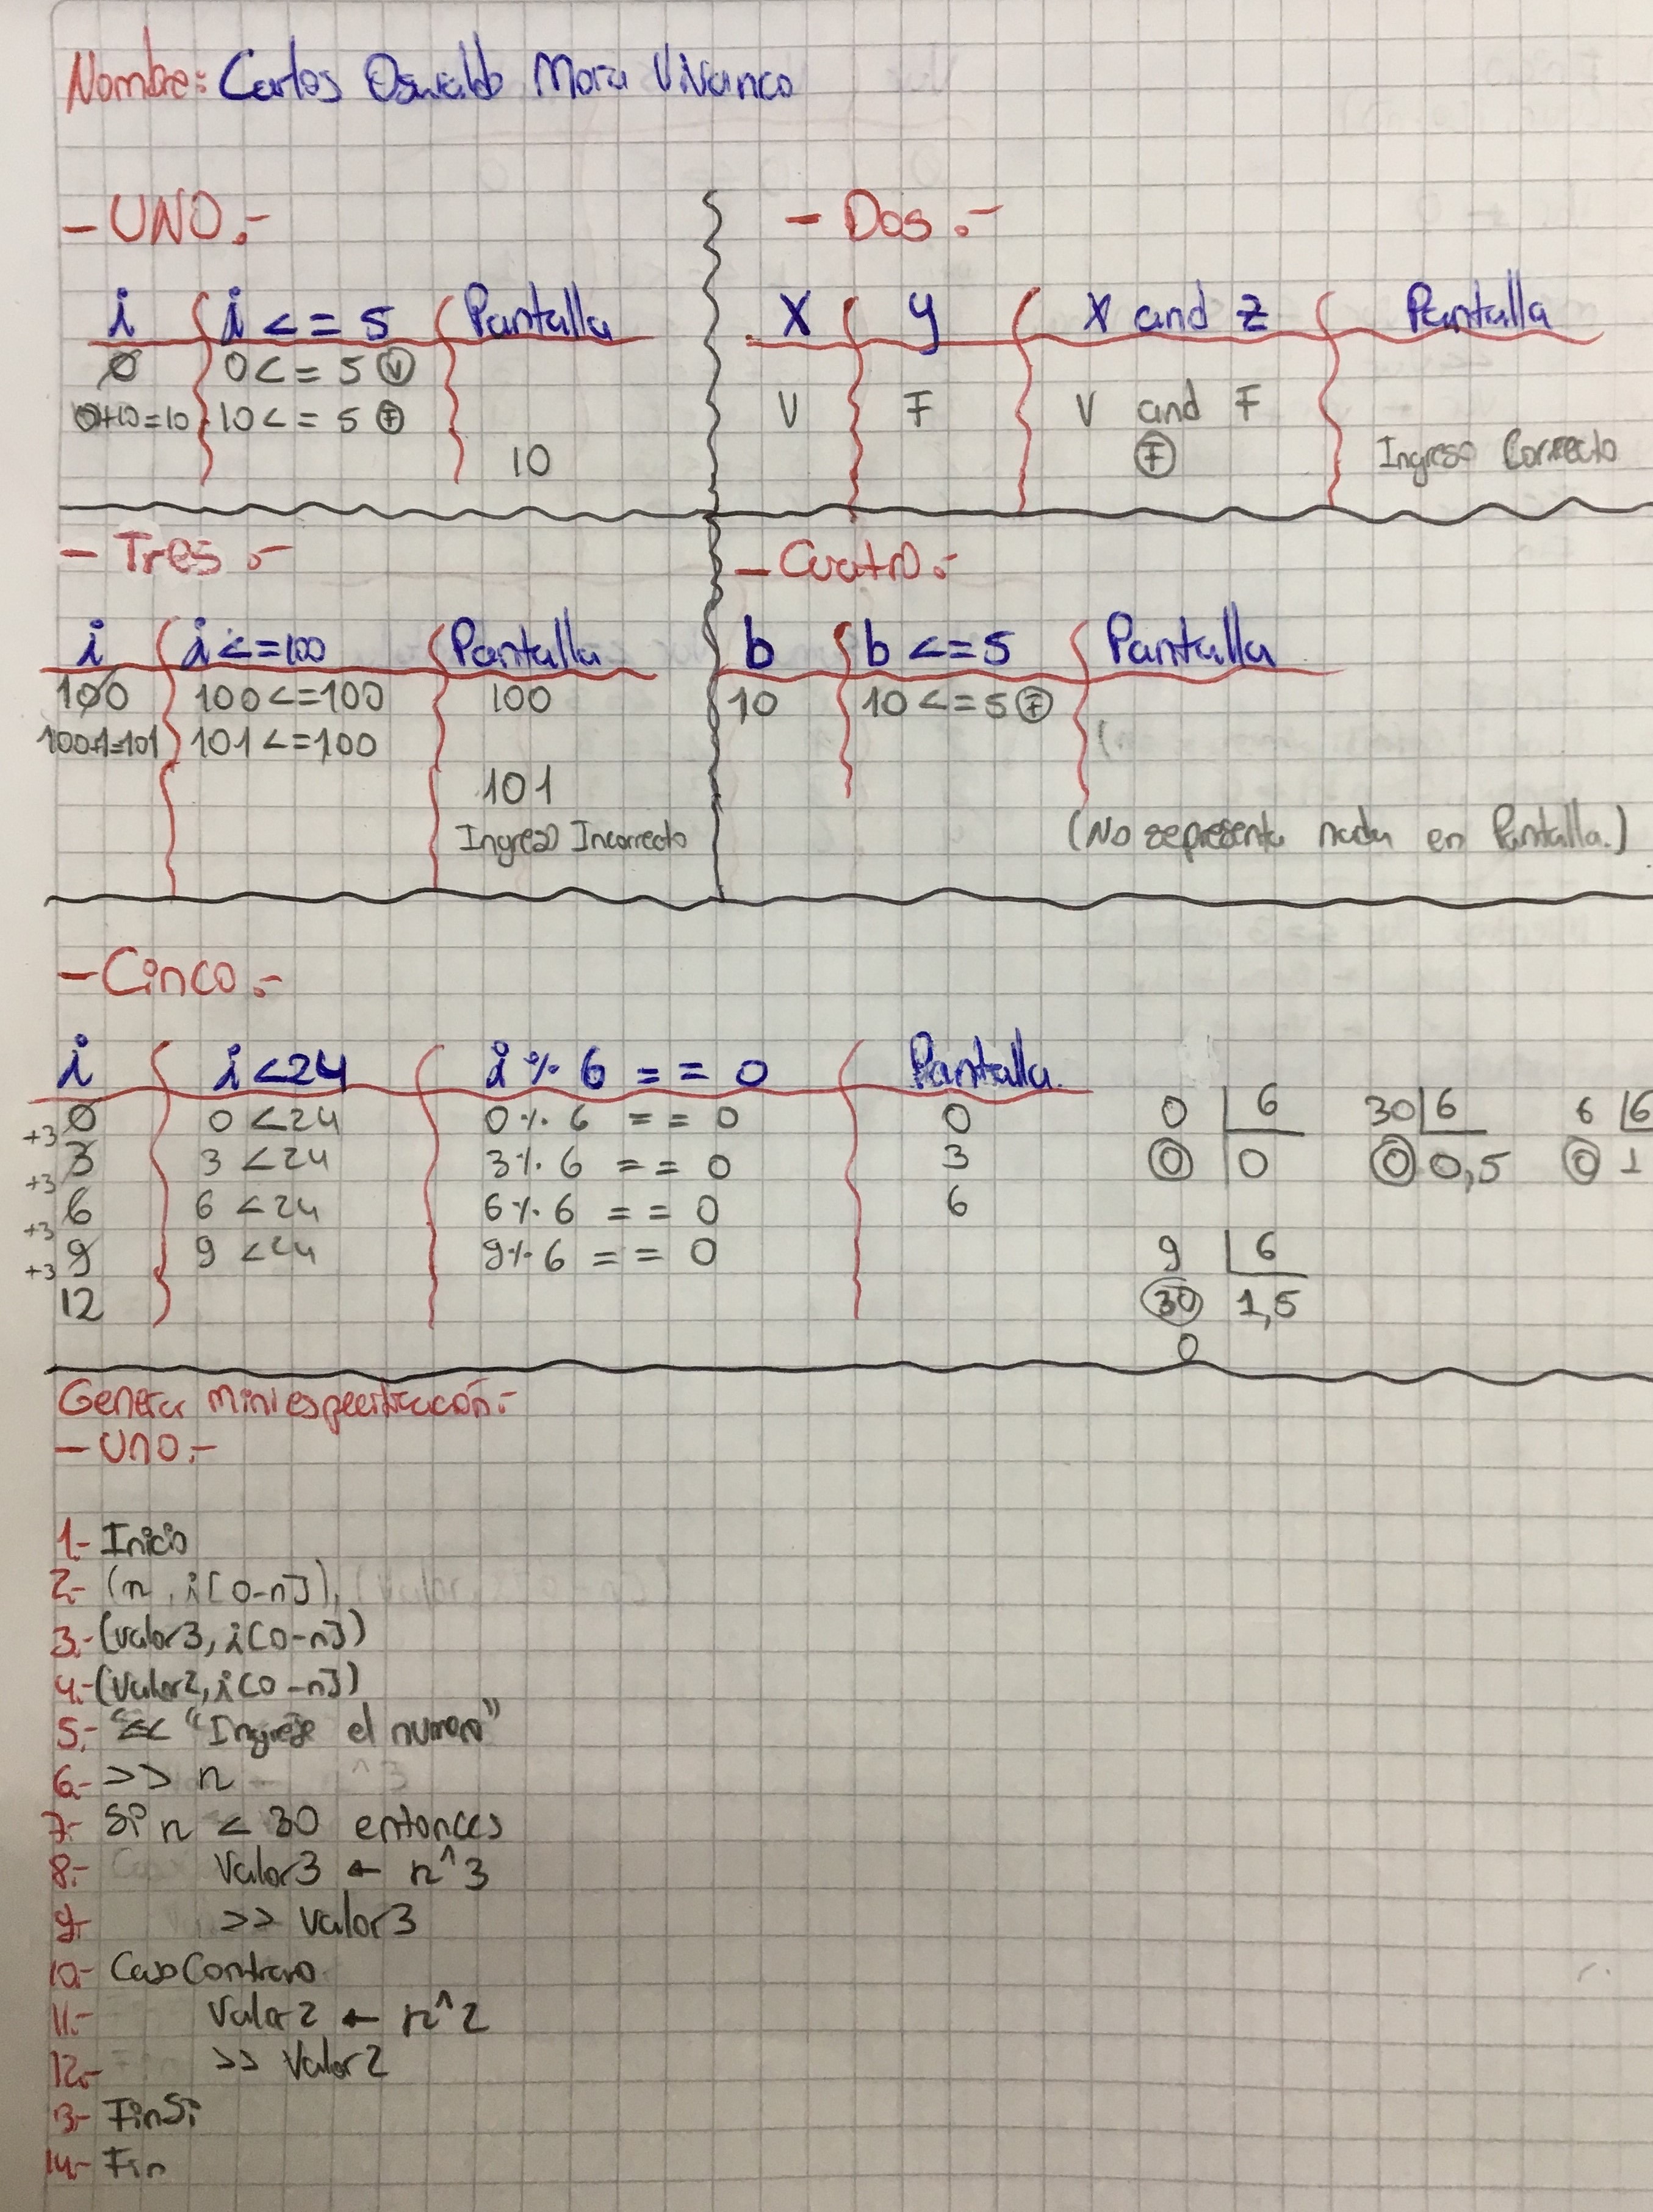 Nombre: Carlos Oswaldo Mora Vivanco
- UNO.-
i i <= 5 Pantalla
0 0 <= 5 V
0+10=10 10 <= 5 F
10
- Dos.-
X y X and z Pantalla
V F V and F
F Ingreso Correcto
- Tres.-
i i <=100 Pantalla
100 100<=100 100
100+1=101 101<=100
101
Ingreso Incorrecto
- Cuatro.-
b b <=5 Pantalla
10 10 <=5 F
(No representa nada en Pantalla.)
- Cinco.-
i i <24 i % 6 == 0 Pantalla
0 0 <24 0 % 6 == 0 0
+3 3 3 <24 3 % 6 == 0 3
+3 6 6 <24 6 % 6 == 0 6
+3 9 9 <24 9 % 6 == 0
+3 12
0 6 30 6 6 6
0 0 0 0,5 0 1
9 6
30 1,5
0
Generar miniespecificación.-
- Uno.-
1.- Inicio
2.- (n, i[0-n]).
3.- (valor3, i[0-n])
4.- (Valor2, i[0-n])
5.- << "Ingrese el numero"
6.- >> n
7.- Si n < 30 entonces
8.- Valor3 ← n^3
9.- >> valor3
10.- Caso Contrario
11.- Valor2 ← n^2
12.- >> Valor2
13.- FinSi
14.- Fin